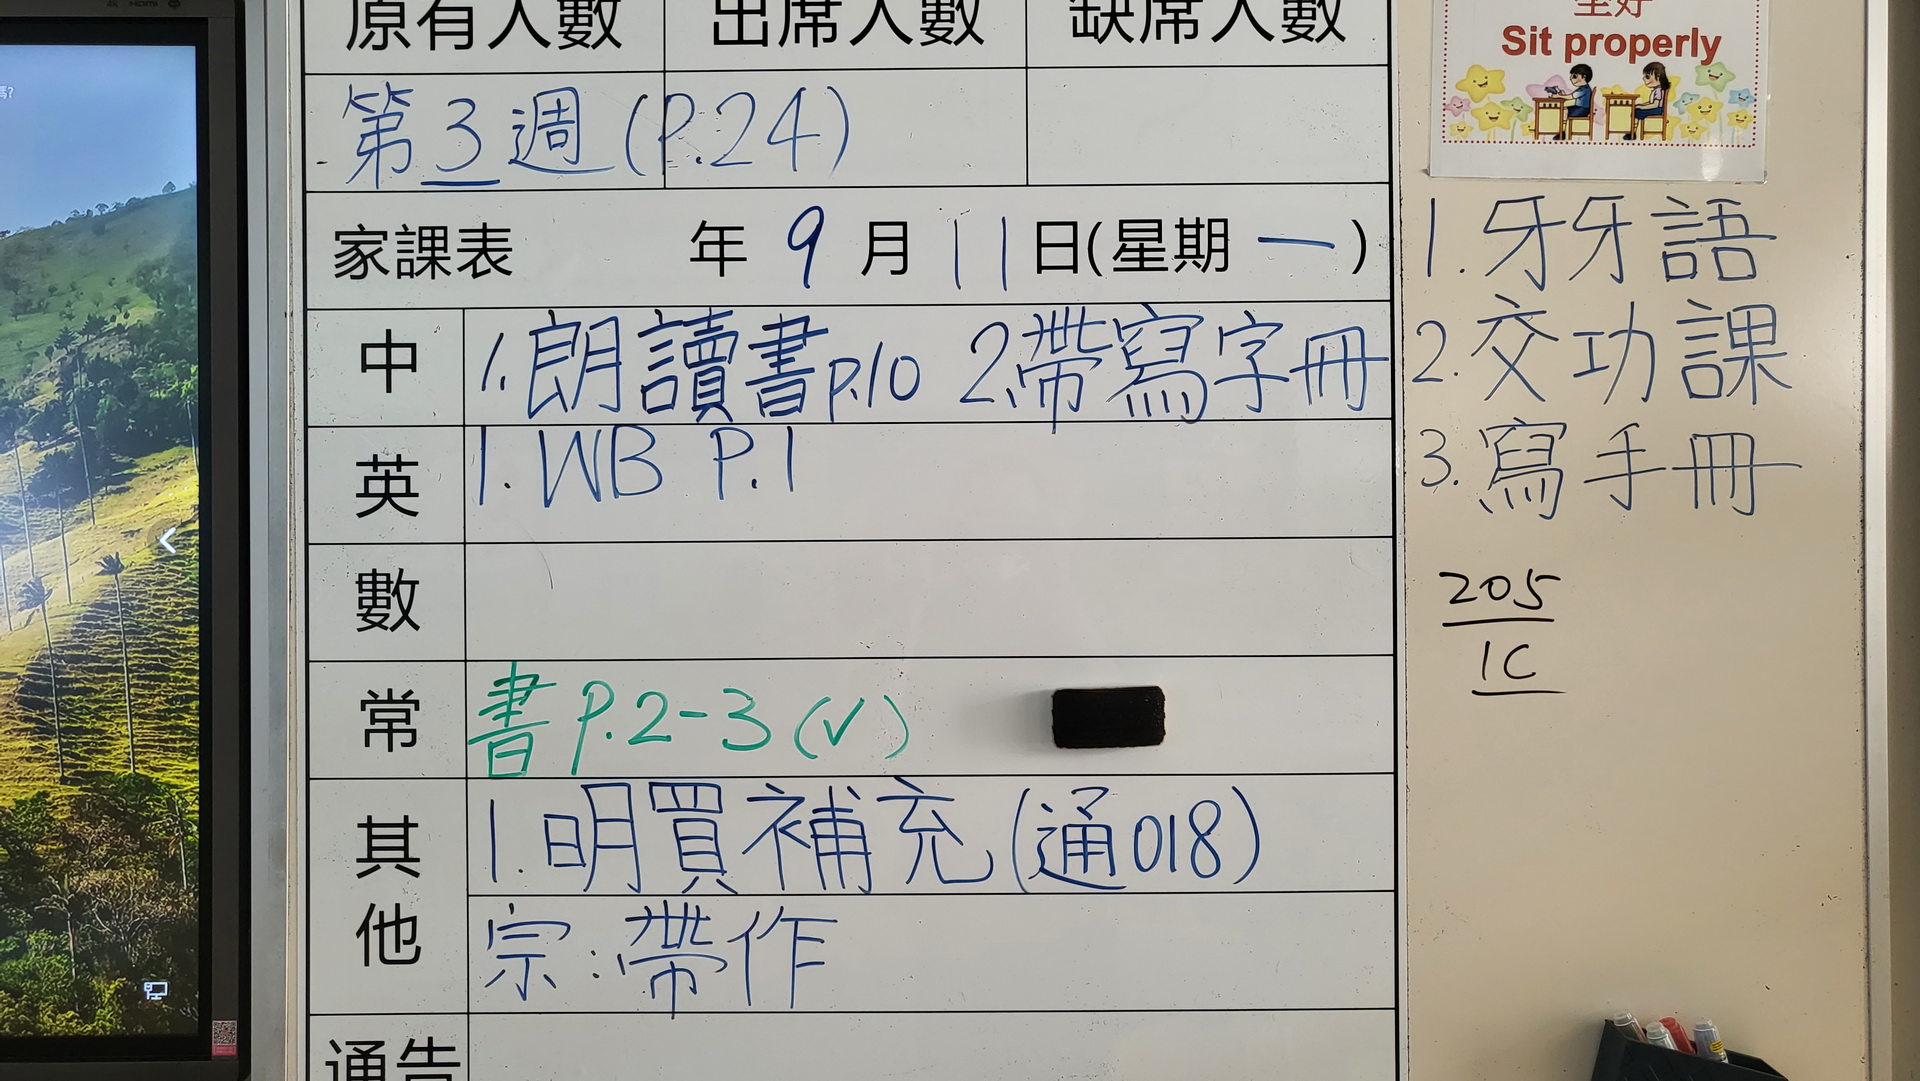 原有人數 出席人數 缺席人數
第3週(P.24)
家課表 年 9 月 11 日(星期 一 )
中 1.朗讀書p.10 2.帶寫字冊
英 1. WB P.1
數
常 書 P.2-3 (✓)
其他 1.明買補充(通018)
宗:帶作
通告
坐好
Sit properly
1.牙牙語
2.交功課
3.寫手冊
205
1C